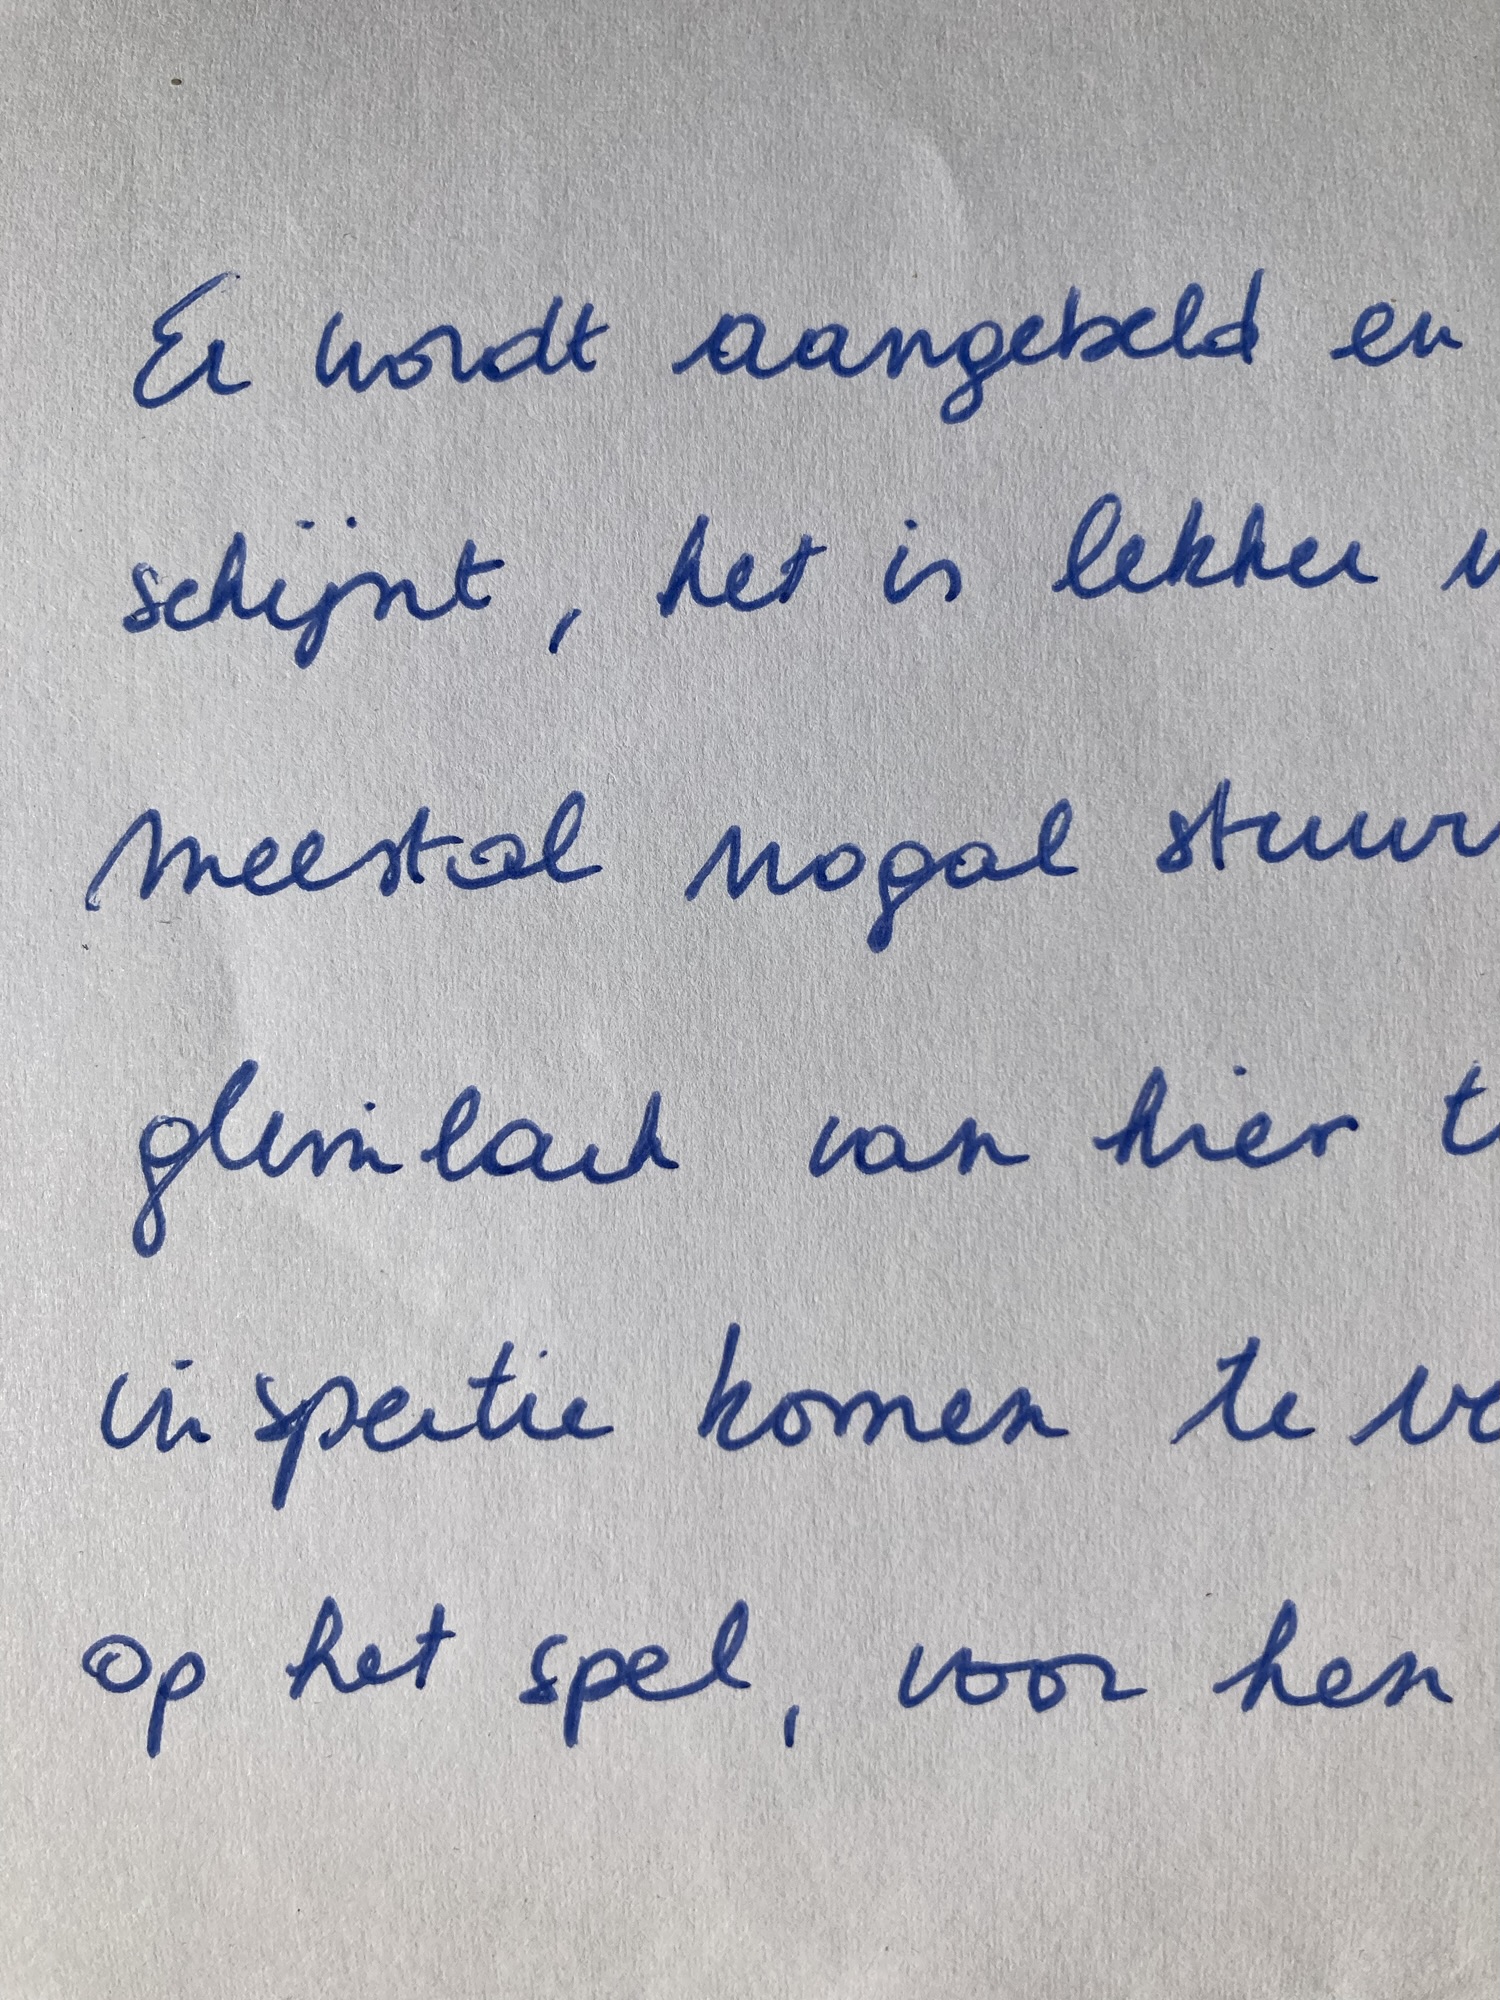 Er wordt aangebeld en
schijnt, het is lekker
meestal nogal
glimlach van hier
inspectie komen te
op het spel, voor hen